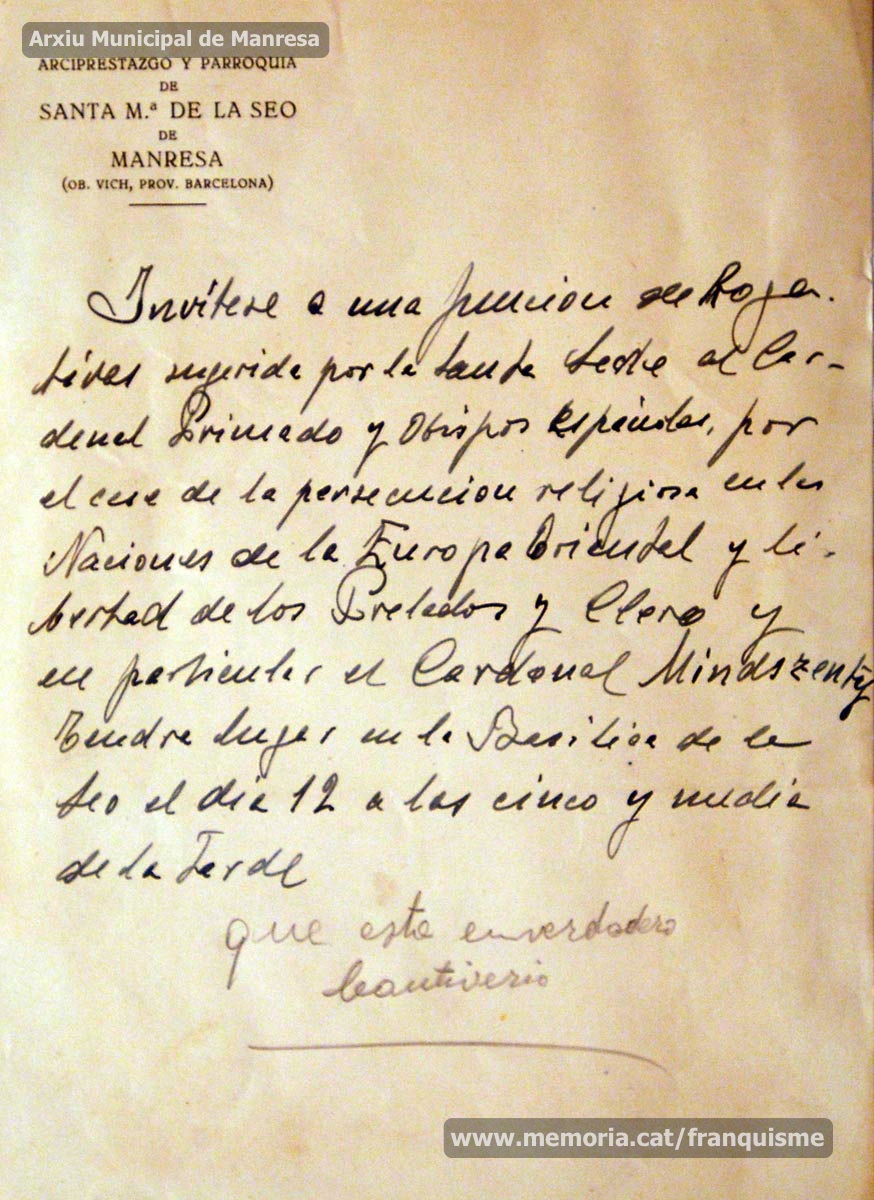 Arxiu Municipal de Manresa
ARCIPRESTAZGO Y PARROQUIA
DE
SANTA M.ª DE LA SEO
DE
MANRESA
(OB. VICH, PROV. BARCELONA)
Invítese a una funcion de Roga-
tivas sugerida por la Santa Sede al Car-
denal Primado y Obispos Españoles, por
el cese de la persecucion religiosa en las
Naciones de la Europa Oriental y li-
bertad de los Prelados y Clero y
en particular el Cardenal Mindszenty
Tendra lugar en la Basilica de la
Seo el dia 12 a las cinco y media
de la Tarde
que esta en verdadero
Cautiverio
www.memoria.cat/franquisme